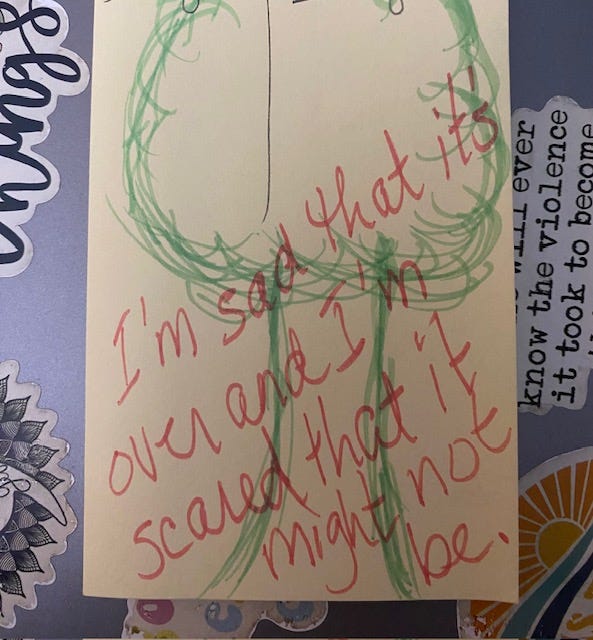 I'm sad that it's
over and I'm
scared that it
might not
be.
things
will ever
know the violence
it took to become